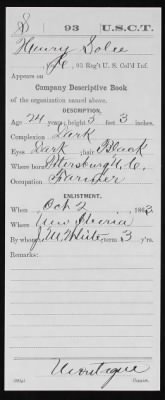 S 93 U.S.C.T.
Henry Solee
, Co. , 93 Reg't U. S. Col'd Inf.
Appears on
Company Descriptive Book
of the organization named above.
DESCRIPTION.
Age 24 years; height 5 feet 3 inches.
Complexion Dark
Eyes Dark; hair Black
Where born Petersburg N.C.
Occupation Farmer
ENLISTMENT.
When Oct 2, 1863.
Where New Iberia
By whom J. M. White; term 3 y'rs.
Remarks:
Copyist.